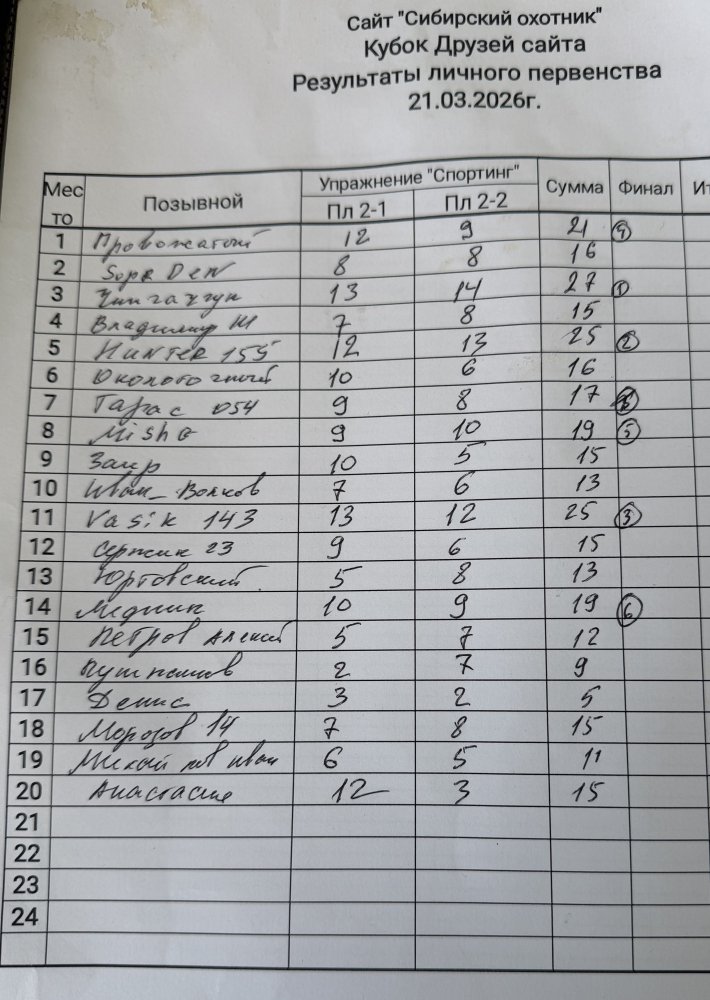 Сайт "Сибирский охотник"
Кубок Друзей сайта
Результаты личного первенства
21.03.2026г.
Мес то Позывной Упражнение "Спортинг" Пл 2-1 Пл 2-2 Сумма Финал
1 Провожатый 12 9 21 4
2 Supr Den 8 8 16
3 Чингачгук 13 14 27 1
4 Владимир Ш 7 8 15
5 HUNTER 155 12 13 25 2
6 Околоточный 10 6 16
7 Тарас 054 9 8 17
8 Misha 9 10 19 5
9 Заир 10 5 15
10 Иван_Волков 7 6 13
11 Vasik 143 13 12 25 3
12 Сержик 23 9 6 15
13 Юртовский 5 8 13
14 Медник 10 9 19 6
15 Петров Алексей 5 7 12
16 2 7 9
17 Денис 3 2 5
18 Морозов 14 7 8 15
19 Иван 6 5 11
20 Анастасия 12 3 15
21
22
23
24